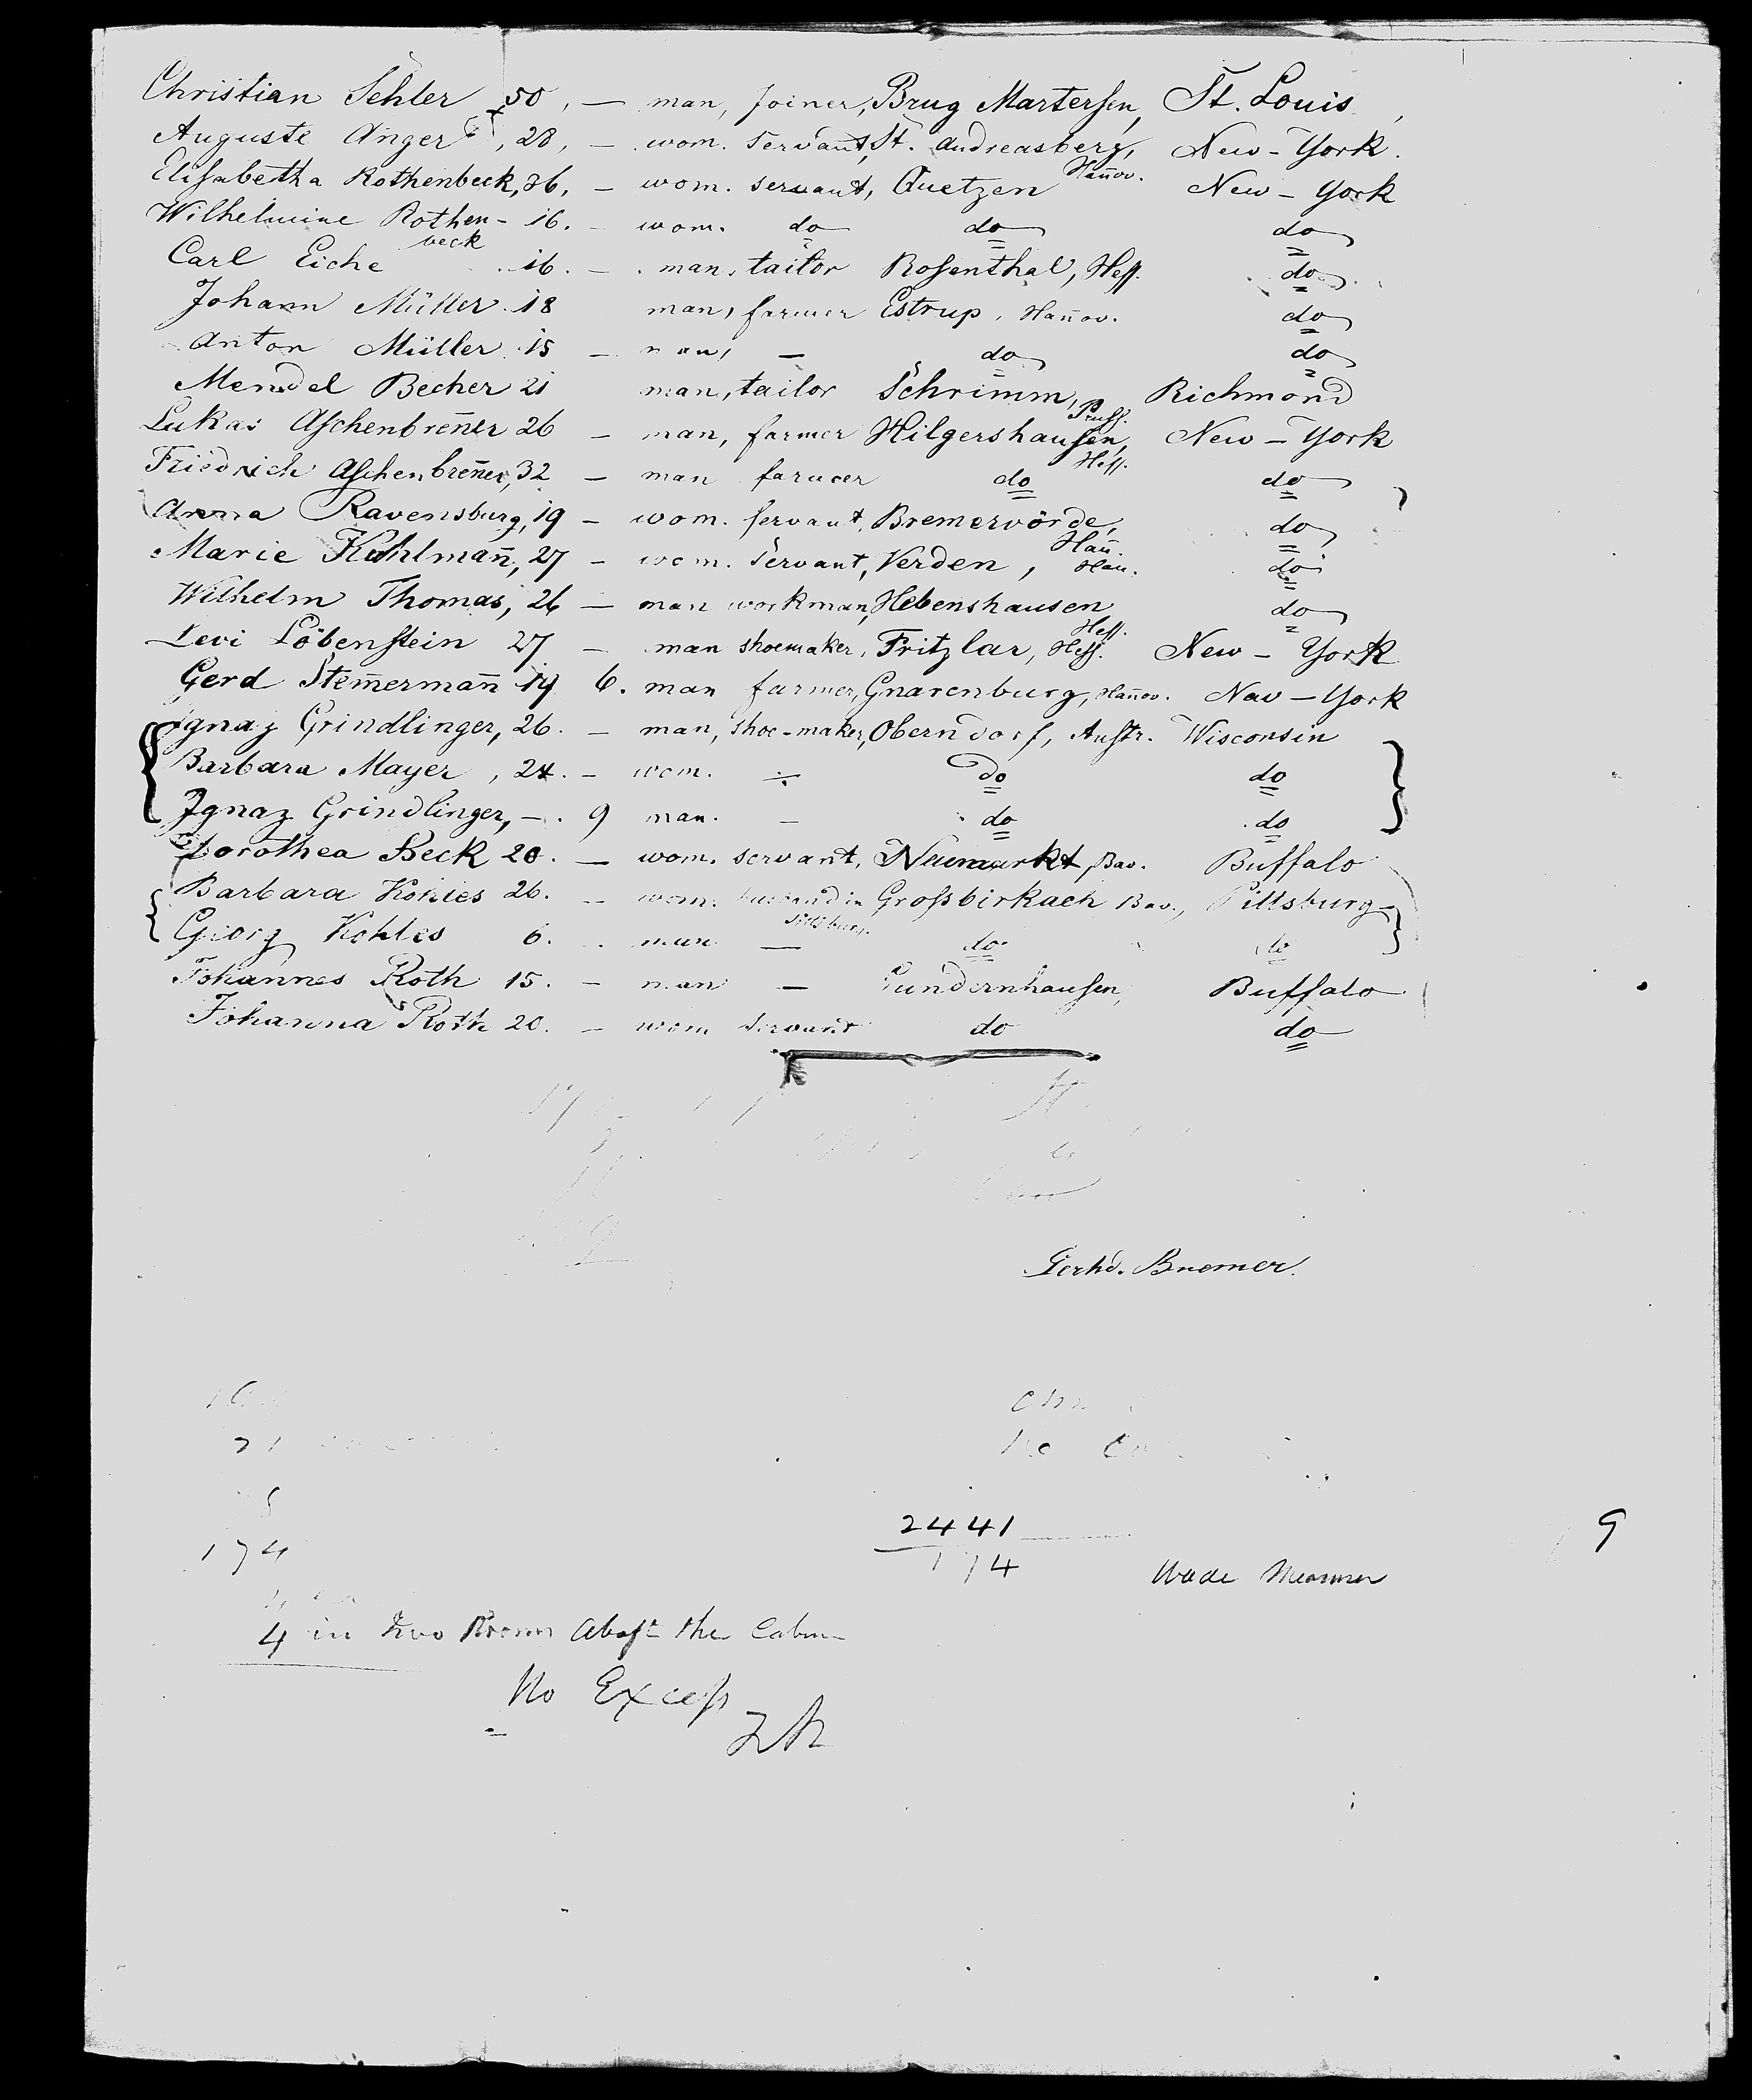 Christian Sehler 50, — man, Joiner, Brug Martersen, St. Louis,
Auguste Anger, 28, — wom. Servant, St. Andreasberg, New-York.
Hañov.
Elisabetha Rothenbeck, 36, — wom. servant, Quetzen New-York
Wilhelmine Rothen- 16. — wom. do do do
beck
Carl Eiche 16. — man, tailor Rosenthal, Hess. do
Johann Müller 18 man, farmer Estrup, Hañov. do
Anton Müller 15 — man, — do do
Mendel Becher 21 man, tailor Schrimm, Richmond
Pruss.
Lukas Aschenbreñer 26 — man, farmer Hilgershausen, New-York
Hess.
Friedrich Aschenbreñer, 32 — man farmer do do
Anna Ravensburg, 19 — wom. servant, Bremervörde, do
Hañ.
Marie Kuhlmañ, 27 — wom. Servant, Verden, Han. do
Wilhelm Thomas, 26 — man workman, Hebenshausen do
Hess.
Levi Löbenstein 27 — man shoemaker, Fritzlar, Hess. New-York
Gerd Stem̃ermañ 19 6. man farmer, Gnarenburg, Hañov. New-York
Ignaz Grindlinger, 26. — man, shoe-maker, Oberndorf, Austr. Wisconsin
Barbara Mayer, 24. — wom. ÷ do do
Ignaz Grindlinger, —. 9 man. — do do
Dorothea Beck 20. — wom. servant, Neumarkt, Bav. Buffalo
Barbara Kohles 26. — wom. husband in Grossbirkach Bav., Pittsburg
Pittsburg.
Georg Kohles 6. — man — do do
Johannes Roth 15. — man — Gundernhausen, Buffalo
Johanna Roth 20. — wom servant do do
Gerhd. Bremer.
2441
9
174
174
4 in two Rooms Abaft the Cabin
No Excess